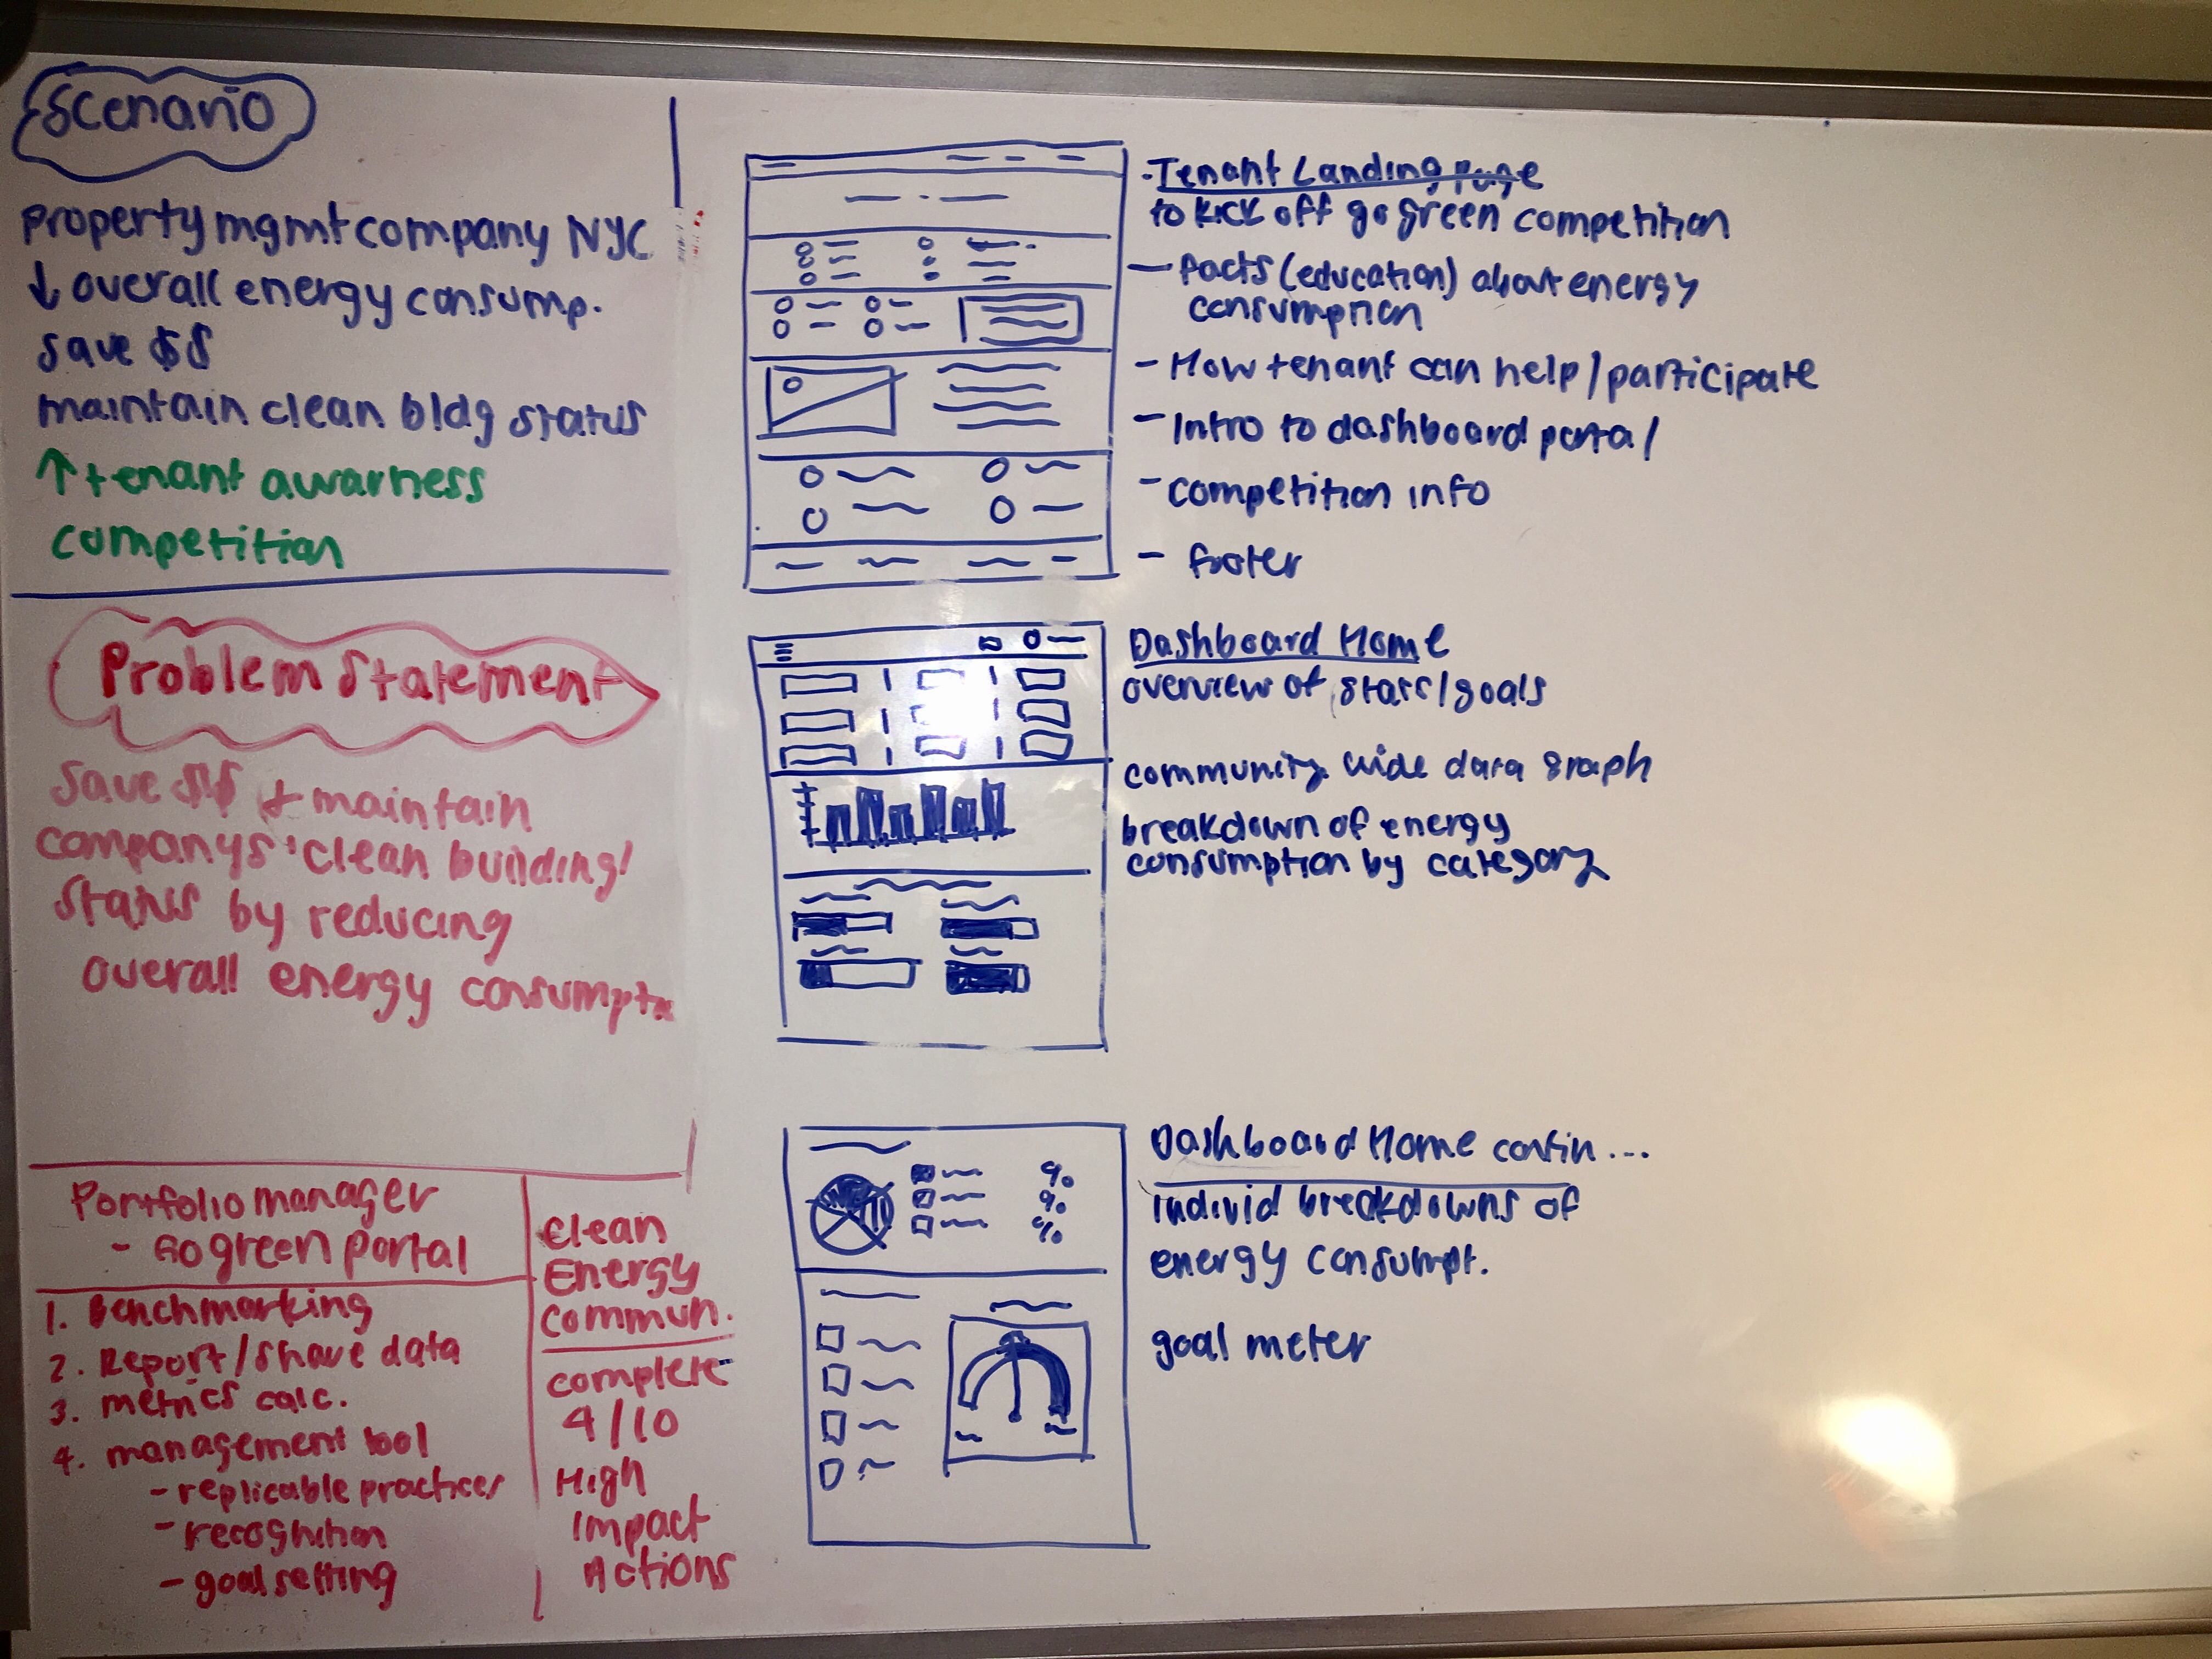 Scenario
property mgmt company NYC
↓ overall energy consump.
save $$
maintain clean bldg status
↑ tenant awarness
competition
Problem Statement
Save $$ + maintain
companys 'clean building'
status by reducing
overall energy consumptn
Portfolio manager
- Go green portal
1. Benchmarking
2. Report/share data
3. metrics calc.
4. management tool
- replicable practices
- recognition
- goal setting
Clean
Energy
Commun.
complete
4/10
High
Impact
Actions
- Tenant Landing Page
to kick off go green competition
- facts (education) about energy
consumption
- How tenant can help/participate
- Intro to dashboard portal
- competition info
- footer
Dashboard Home
overview of stats/goals
community wide data graph
breakdown of energy
consumption by category
%
%
%
Dashboard Home contin...
individ breakdowns of
energy consumpt.
goal meter